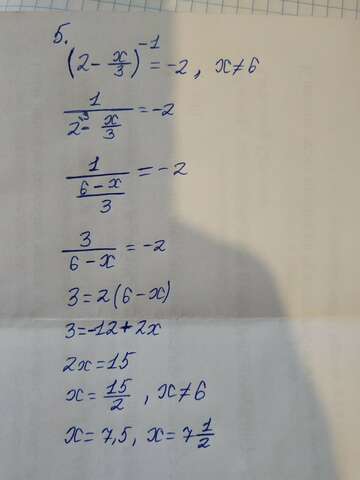 5.
(2 - x/3)^-1 = -2, x ≠ 6
1/(2^3 - x/3) = -2
1/((6-x)/3) = -2
3/(6-x) = -2
3 = 2(6-x)
3 = -12 + 2x
2x = 15
x = 15/2, x ≠ 6
x = 7,5, x = 7 1/2